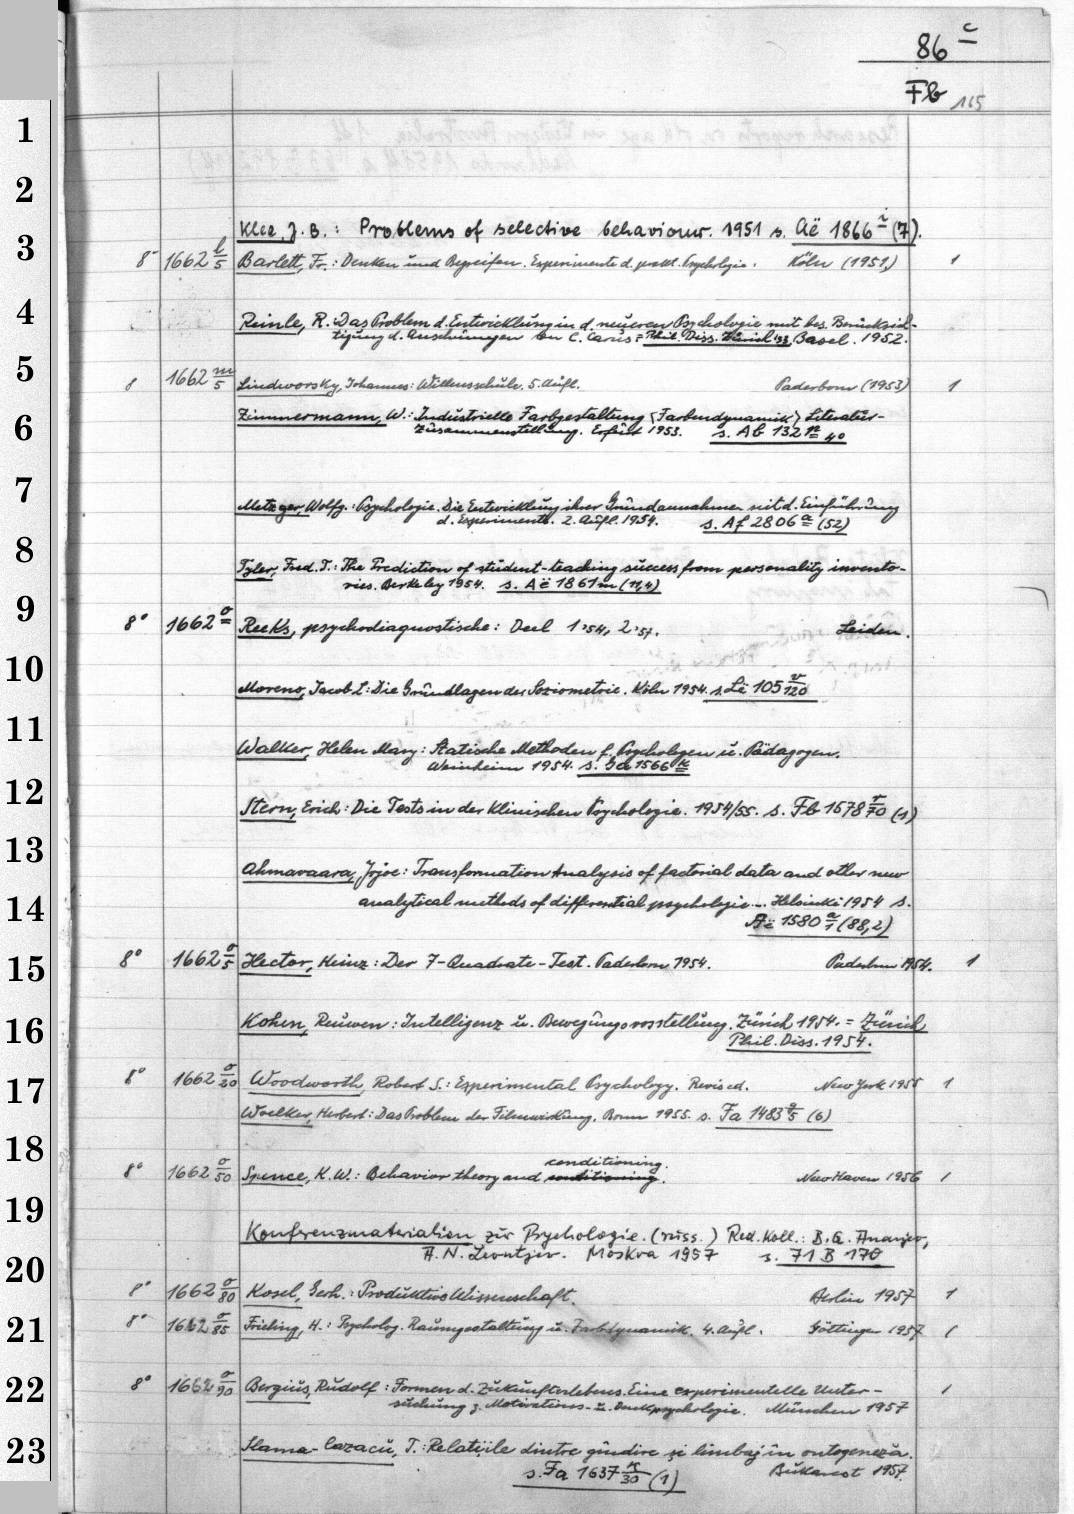 86 c
Fb 165
1
2
Klee, J. B.: Problems of selective behaviour. 1951 s. Aë 1866 i (7).
3
8° 1662 l/5 Barlett, Fr.: Denken und Begreifen. Experimente d. prakt. Psychologie. Köln (1951) 1
4
Reinle, R. Das Problem d. Entwicklung in d. neueren Psychologie mit bes. Berücksich-
tigung d. Anschauungen von C. Carus = Phil. Diss. Zürich Basel. 1952.
5
8 1662 m/5 Lindworsky, Johannes: Willensschule. 5. Aufl. Paderborn (1953) 1
6
Zimmermann, W.: Industrielle Farbgestaltung (Farbendynamik) Literatur-
Zusammenstellung. Erfurt 1953. s. Ab 132 40
7
Metzger, Wolfg.: Psychologie. Die Entwicklung ihrer Grundannahmen seit d. Einführung
d. Experiments. 2. Aufl. 1954. s. Af 2806 a (52)
8
Tyler, Fred. T.: The Prediction of student-teaching success from personality invento-
ries. Berkeley 1954. s. Aë 1861 m (11,4)
9
8° 1662 o Reeks, psychodiagnostische: Deel 1 '54, 2 '57. Leiden.
10
Moreno, Jacob L: Die Grundlagen der Soziometrie. Köln 1954. s. Lë 105 v/120
11
Walker, Helen Mary: Statische Methoden f. Psychologen u. Pädagogen.
Weinheim 1954. s. Ga 1566 k
12
Stern, Erich: Die Tests in der Klinischen Psychologie. 1954/55. s. Fb 1678 r/70 (1)
13
Ahmavaara, Yrjoe: Transformation Analysis of factorial data and other new
14
analytical methods of differential psychologie... Helsinki 1954 s.
Aë 1580 a/1 (88,2)
15
8° 1662 o/5 Hector, Heinz: Der 7-Quadrate-Test. Paderborn 1954. Paderborn 1954. 1
16
Kohen, Reuwen: Intelligenz u. Bewegungsvorstellung. Zürich 1954. = Zürich
Phil. Diss. 1954.
17
8° 1662 o/20 Woodworth, Robert S.: Experimental Psychology. Revised. New York 1955 1
Woelker, Herbert: Das Problem der Filmwirkung. Bonn 1955. s. Fa 1483 a/5 (6)
18
conditioning.
8° 1662 o/50 Spence, K. W.: Behavior theory and conditioning. New Haven 1956 1
19
Konferenzmaterialien zur Psychologie. (russ.) Red. Koll.: B. G. Ananjev,
A. N. Leontjev. Moskva 1957 s. 71 B 170
20
8° 1662 o/80 Kosel, Gerh.: Produktive Wissenschaft. Berlin 1957 1
21
8° 1662 o/85 Frieling, H.: Psycholog. Raumgestaltung u. Farbdynamik. 4. Aufl. Göttingen 1957 1
22
8° 1662 o/90 Bergius, Rudolf: Formen d. Zukunftserlebens. Eine experimentelle Unter- 1
suchung z. Motivations- u. Denkpsychologie. München 1957
23
Slama-Cazacu, T.: Relațiile dintre gîndire şi limbaj în ontogeneza.
s. Fa 1637 r/30 (1) Bukarest 1957.